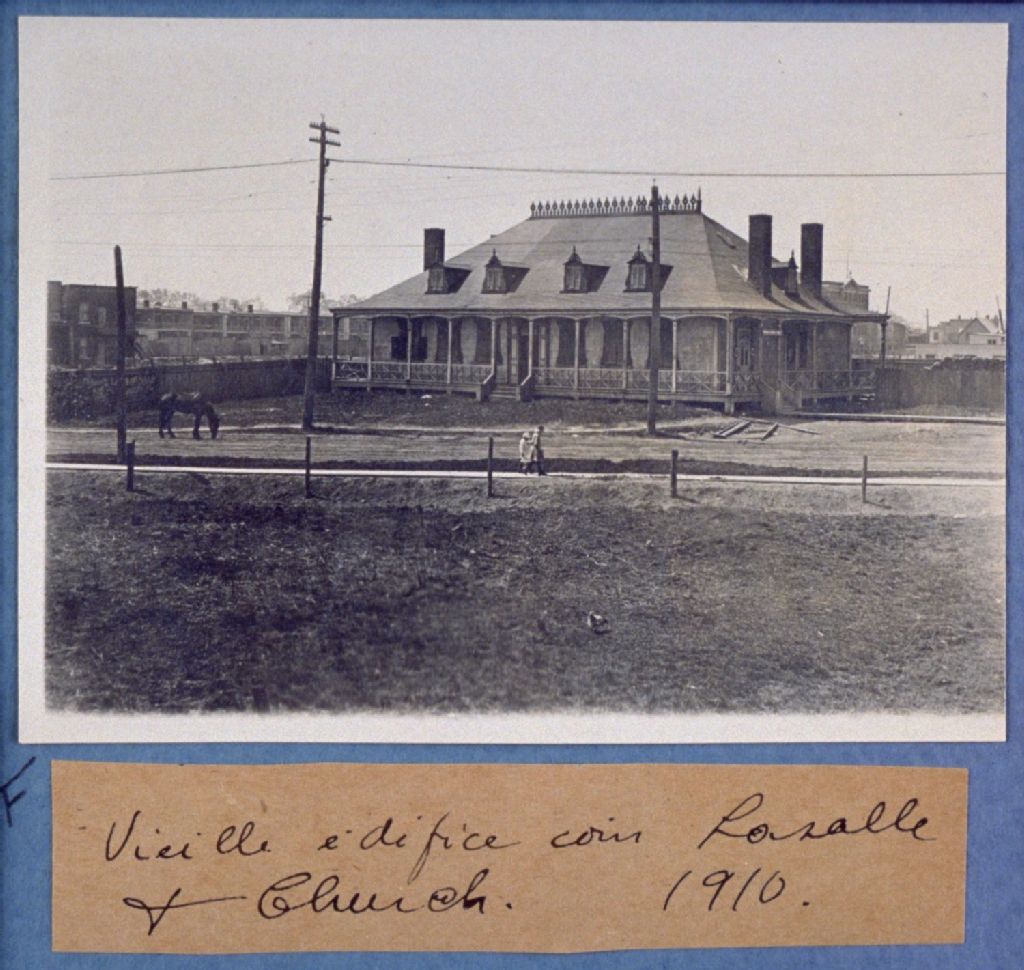 Vieille édifice coin Lasalle
& Church. 1910.
F